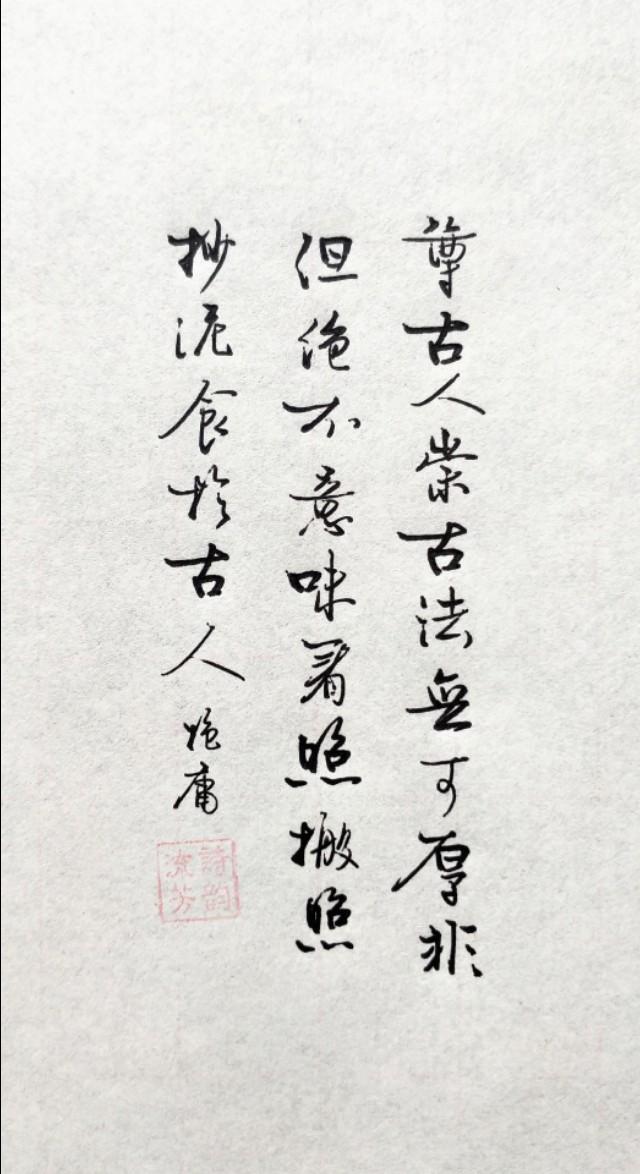 尊古人崇古法無可厚非
但绝不意味着照搬照
抄泥食於古人
庸
詩韵
流芳